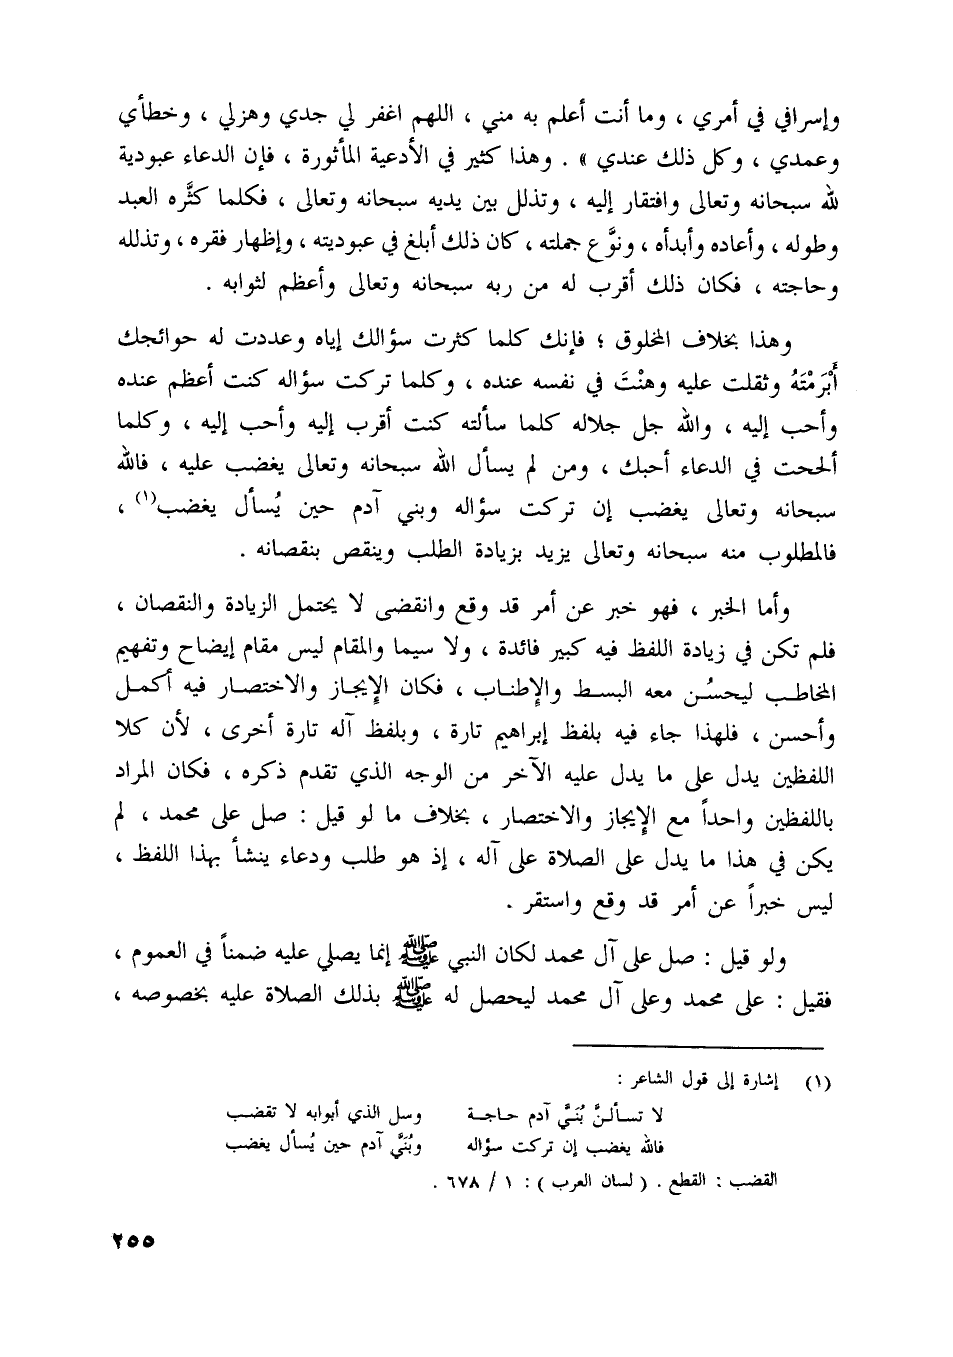 وإسرافي في أمري ، وما أنت أعلم به مني ، اللهم اغفر لي جدي وهزلي ، وخطأي
وعمدي ، وكل ذلك عندي » . وهذا كثير في الأدعية المأثورة ، فإن الدعاء عبودية
لله سبحانه وتعالى وافتقار إليه ، وتذلل بين يديه سبحانه وتعالى ، فكلما كثَّره العبد
وطوله ، وأعاده وأبدأه ، ونوَّع جملته ، كان ذلك أبلغ في عبوديته ، وإظهار فقره ، وتذلله
وحاجته ، فكان ذلك أقرب له من ربه سبحانه وتعالى وأعظم لثوابه .
وهذا بخلاف المخلوق ؛ فإنك كلما كثرت سؤالك إياه وعددت له حوائجك
أَبْرَمْتَهُ وثقلت عليه وهنْتَ في نفسه عنده ، وكلما تركت سؤاله كنت أعظم عنده
وأحب إليه ، والله جل جلاله كلما سألته كنت أقرب إليه وأحب إليه ، وكلما
ألححت في الدعاء أحبك ، ومن لم يسأل الله سبحانه وتعالى يغضب عليه ، فالله
سبحانه وتعالى يغضب إن تركت سؤاله وبني آدم حين يُسأل يغضب(١) ،
فالمطلوب منه سبحانه وتعالى يزيد بزيادة الطلب وينقص بنقصانه .
وأما الخبر ، فهو خبر عن أمر قد وقع وانقضى لا يحتمل الزيادة والنقصان ،
فلم تكن في زيادة اللفظ فيه كبير فائدة ، ولا سيما والمقام ليس مقام إيضاح وتفهيم
المخاطب ليحسُن معه البسط والإطناب ، فكان الإيجاز والاختصار فيه أكمل
وأحسن ، فلهذا جاء فيه بلفظ إبراهيم تارة ، وبلفظ آله تارة أخرى ، لأن كلا
اللفظين يدل على ما يدل عليه الآخر من الوجه الذي تقدم ذكره ، فكان المراد
باللفظين واحداً مع الإيجاز والاختصار ، بخلاف ما لو قيل : صل على محمد ، لم
يكن في هذا ما يدل على الصلاة على آله ، إذ هو طلب ودعاء ينشأ بهذا اللفظ ،
ليس خبراً عن أمر قد وقع واستقر .
ولو قيل : صل على آل محمد لكان النبي ﷺ إنما يصلي عليه ضمناً في العموم ،
فقيل : على محمد وعلى آل محمد ليحصل له ﷺ بذلك الصلاة عليه بخصوصه ،
(١) إشارة إلى قول الشاعر :
لا تسألنَّ بُنَيَّ آدم حاجة وسل الذي أبوابه لا تقضب
فالله يغضب إن تركت سؤاله وبُنَيَّ آدم حين يُسأل يغضب
القضب : القطع . ( لسان العرب ) : ١ / ٦٧٨ .
٢٥٥